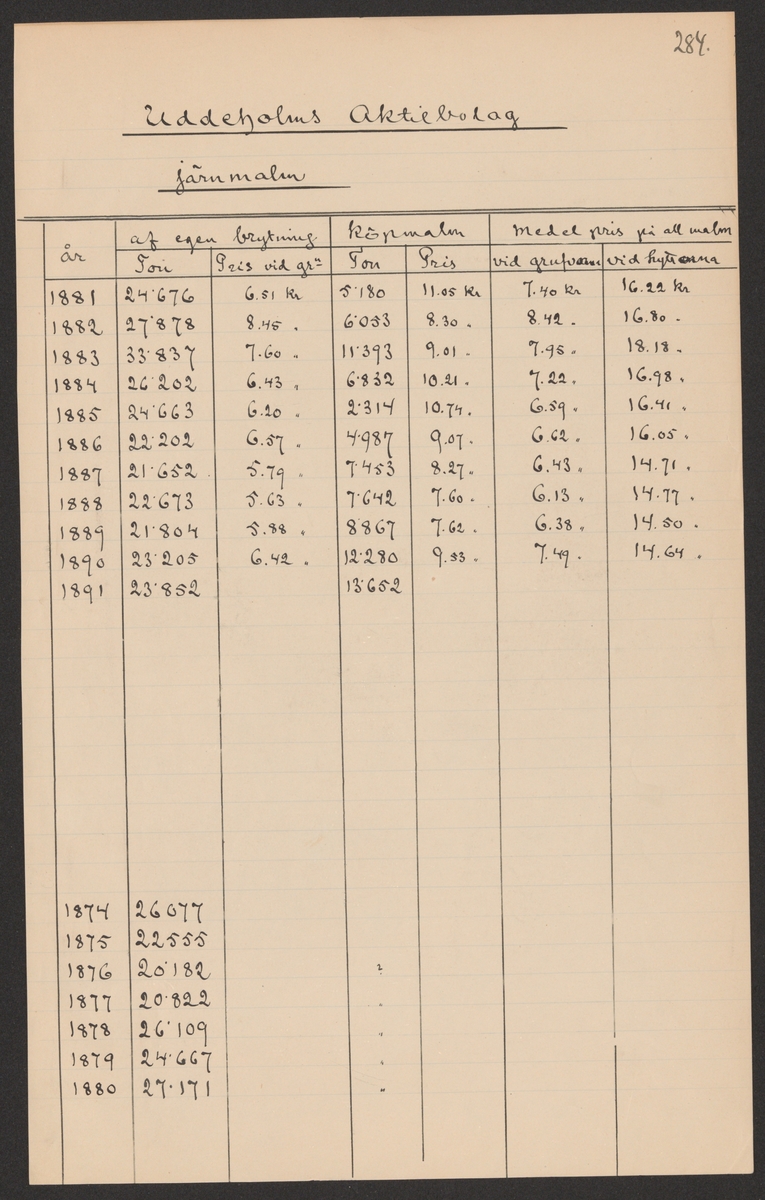 284.
Uddeholms Aktiebolag
järnmalm
år af egen brytning köpmalm Medel pris på all malm
Ton Pris vid gr:n Ton Pris vid grufvorna vid hyttorna
1881 24·676 6.51 kr 5·180 11.05 kr 7.40 kr 16.22 kr
1882 27·878 8.45 " 6·053 8.30 " 8.42 " 16.80 "
1883 33·837 7.60 " 11·393 9.01 " 7.95 " 18.18 "
1884 26·202 6.43 " 6·832 10.21 " 7.22 " 16.98 "
1885 24·663 6.20 " 2·314 10.74 " 6.59 " 16.41 "
1886 22·202 6.57 " 4·987 9.07 " 6.62 " 16.05 "
1887 21·652 5.79 " 7·453 8.27 " 6.43 " 14.71 "
1888 22·673 5.63 " 7·642 7.60 " 6.13 " 14.77 "
1889 21·804 5.88 " 8·867 7.62 " 6.38 " 14.50 "
1890 23·205 6.42 " 12·280 9.53 " 7.49 " 14.64 "
1891 23·852 13·652
1874 26077
1875 22555
1876 20·182 ?
1877 20·822 "
1878 26·109 "
1879 24·667 "
1880 27·171 "